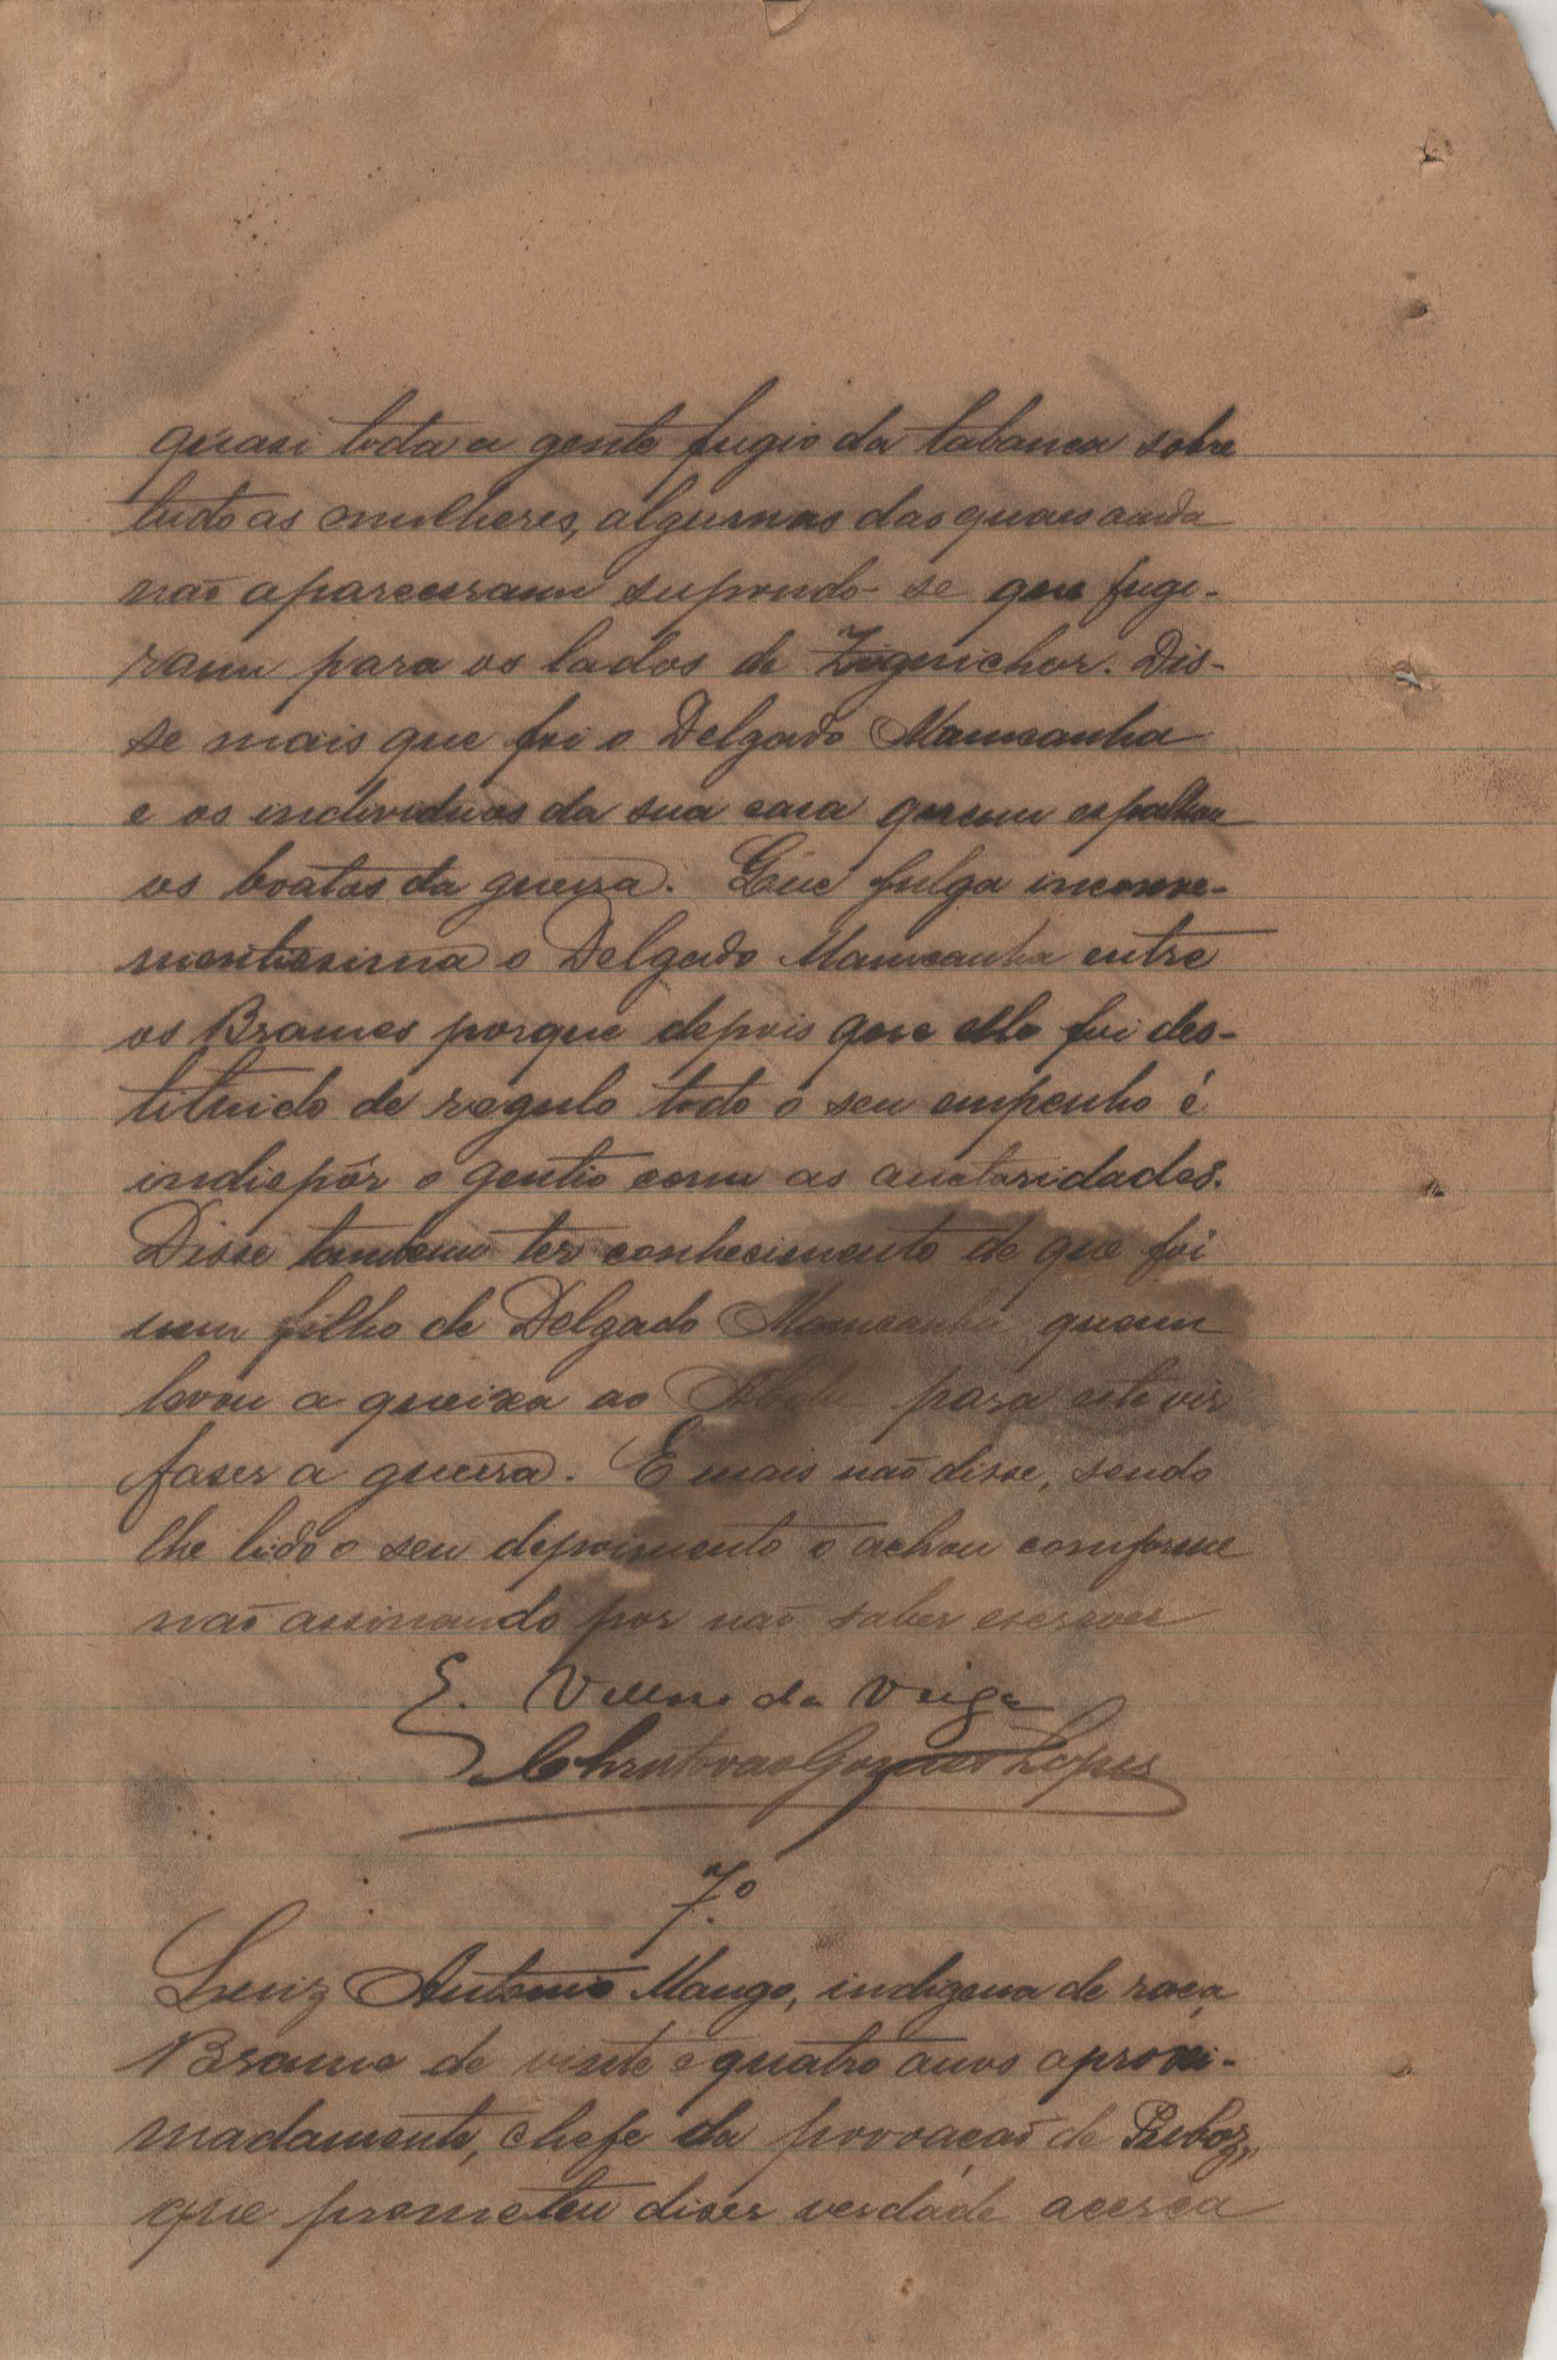 quasi toda a gente fugio da tabanca sobre
tudo as mulheres, algumas das quaes ainda
não apareceram supondo-se que fugi-
ram para os lados de Ziguichor. Dis-
se mais que foi o Delgado Mamsanha
e os individuos da sua casa quem espalhou
os boatos da guerra. Que julga inconve-
nientissima o Delgado Mamsanha entre
os Brames porque depois que elle foi des-
tituido de regulo todo o seu empenho é
indispôr o gentio com as auctoridades.
Disse tambem ter conhecimento de que foi
um filho de Delgado Mamsanha quem
levou a queixa ao para este vir
faser a guerra. E mais não disse, sendo
lhe lido o seu depoimento o achou conforme
não assinando por não saber escrever
E. da Veiga
Christovão Gomes Lopes
7.º
Luiz Antonio Mango, indigena de raça
Brame de vinte e quatro anos aproxi-
madamente, chefe da povoação de
que prometeu diser verdade acerca